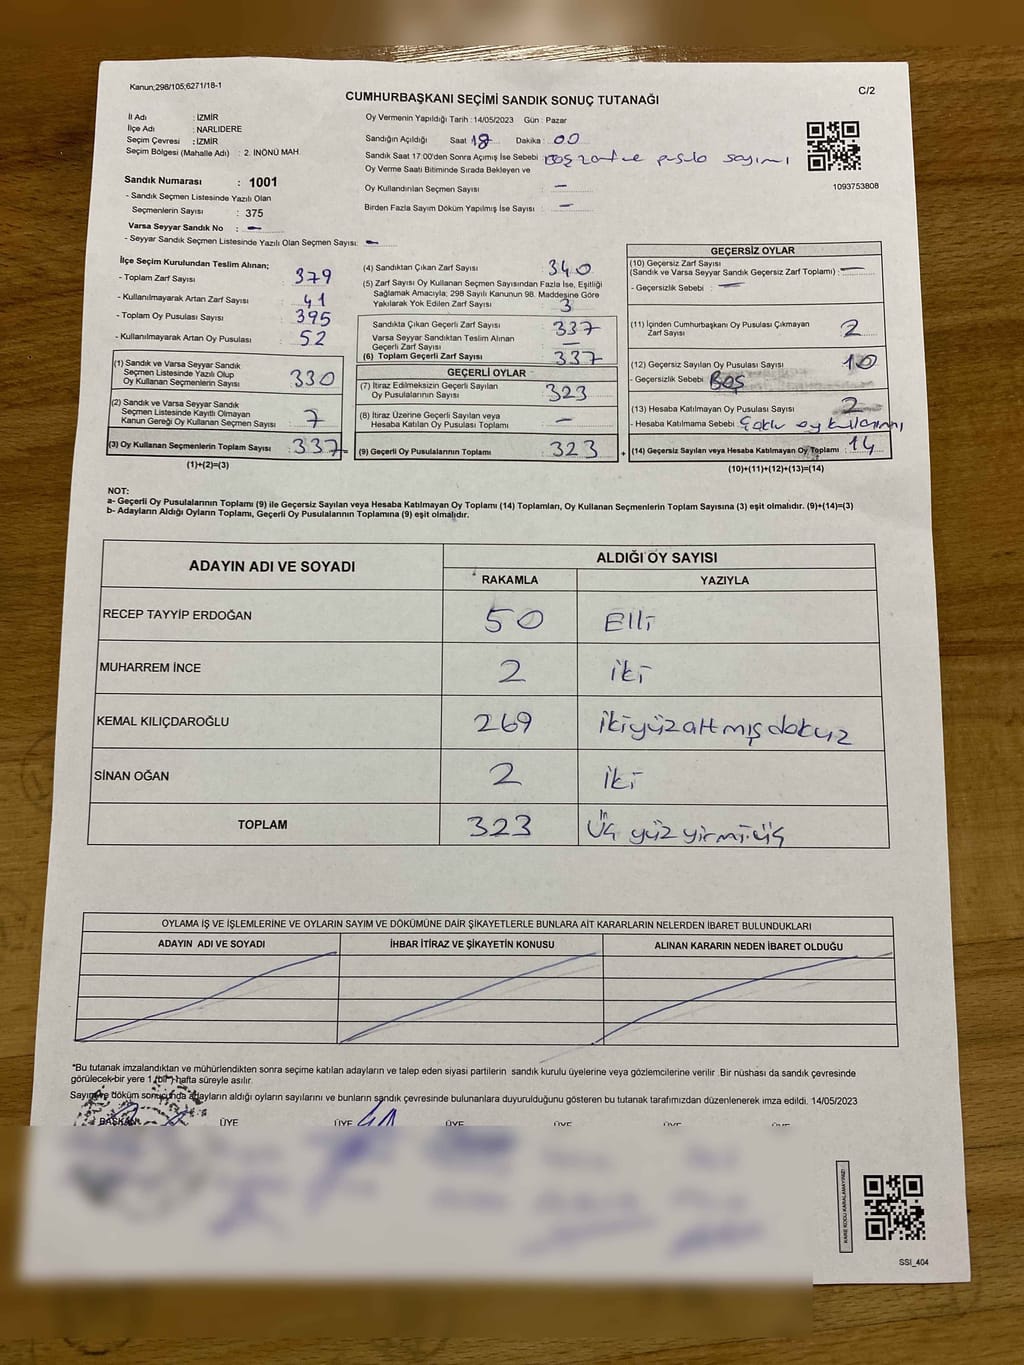 Kanun;298/105;6271/18-1
C/2
CUMHURBAŞKANI SEÇİMİ SANDIK SONUÇ TUTANAĞI
İl Adı : İZMİR
İlçe Adı : NARLIDERE
Seçim Çevresi : İZMİR
Seçim Bölgesi (Mahalle Adı) : 2. İNÖNÜ MAH.
Sandık Numarası : 1001
- Sandık Seçmen Listesinde Yazılı Olan
Seçmenlerin Sayısı : 375
Varsa Seyyar Sandık No : -
- Seyyar Sandık Seçmen Listesinde Yazılı Olan Seçmen Sayısı: -
Oy Vermenin Yapıldığı Tarih : 14/05/2023 Gün : Pazar
Sandığın Açıldığı Saat 18 Dakika : 00
Sandık Saat 17.00'den Sonra Açımış İse Sebebi Boş zarf ve pusula sayımı
Oy Verme Saati Bitiminde Sırada Bekleyen ve
Oy Kullandırılan Seçmen Sayısı : -
Birden Fazla Sayım Döküm Yapılmış İse Sayısı : -
1093753808
İlçe Seçim Kurulundan Teslim Alınan;
- Toplam Zarf Sayısı 379
- Kullanılmayarak Artan Zarf Sayısı 41
- Toplam Oy Pusulası Sayısı 395
- Kullanılmayarak Artan Oy Pusulası 52
(1) Sandık ve Varsa Seyyar Sandık
Seçmen Listesinde Yazılı Olup
Oy Kullanan Seçmenlerin Sayısı 330
(2) Sandık ve Varsa Seyyar Sandık
Seçmen Listesinde Kayıtlı Olmayan
Kanun Gereği Oy Kullanan Seçmen Sayısı 7
(3) Oy Kullanan Seçmenlerin Toplam Sayısı : 337
(1)+(2)=(3)
(4) Sandıktan Çıkan Zarf Sayısı 340
(5) Zarf Sayısı Oy Kullanan Seçmen Sayısından Fazla İse, Eşitliği
Sağlamak Amacıyla; 298 Sayılı Kanunun 98. Maddesine Göre
Yakılarak Yok Edilen Zarf Sayısı : 3
Sandıkta Çıkan Geçerli Zarf Sayısı : 337
Varsa Seyyar Sandıktan Teslim Alınan
Geçerli Zarf Sayısı : -
(6) Toplam Geçerli Zarf Sayısı : 337
GEÇERLİ OYLAR
(7) İtiraz Edilmeksizin Geçerli Sayılan
Oy Pusulalarının Sayısı : 323
(8) İtiraz Üzerine Geçerli Sayılan veya
Hesaba Katılan Oy Pusulası Toplamı : -
(9) Geçerli Oy Pusulalarının Toplamı : 323
GEÇERSİZ OYLAR
(10) Geçersiz Zarf Sayısı
(Sandık ve Varsa Seyyar Sandık Geçersiz Zarf Toplamı) : -
- Geçersizlik Sebebi : -
(11) İçinden Cumhurbaşkanı Oy Pusulası Çıkmayan
Zarf Sayısı : 2
(12) Geçersiz Sayılan Oy Pusulası Sayısı : 10
- Geçersizlik Sebebi : BOŞ
(13) Hesaba Katılmayan Oy Pusulası Sayısı : 2
- Hesaba Katılmama Sebebi : Çoklu oy kullanımı
+ (14) Geçersiz Sayılan veya Hesaba Katılmayan Oy Toplamı : 14
(10)+(11)+(12)+(13)=(14)
NOT:
a- Geçerli Oy Pusulalarının Toplamı (9) ile Geçersiz Sayılan veya Hesaba Katılmayan Oy Toplamı (14) Toplamları, Oy Kullanan Seçmenlerin Toplam Sayısına (3) eşit olmalıdır. (9)+(14)=(3)
b- Adayların Aldığı Oyların Toplamı, Geçerli Oy Pusulalarının Toplamına (9) eşit olmalıdır.
ADAYIN ADI VE SOYADI ALDIĞI OY SAYISI
RAKAMLA YAZIYLA
RECEP TAYYİP ERDOĞAN 50 Elli
MUHARREM İNCE 2 iki
KEMAL KILIÇDAROĞLU 269 ikiyüzaltmışdokuz
SİNAN OĞAN 2 iki
TOPLAM 323 Üç yüz yirmi üç
OYLAMA İŞ VE İŞLEMLERİNE VE OYLARIN SAYIM VE DÖKÜMÜNE DAİR ŞİKAYETLERLE BUNLARA AİT KARARLARIN NELERDEN İBARET BULUNDUKLARI
ADAYIN ADI VE SOYADI İHBAR İTİRAZ VE ŞİKAYETİN KONUSU ALINAN KARARIN NEDEN İBARET OLDUĞU
*Bu tutanak imzalandıktan ve mühürlendikten sonra seçime katılan adayların ve talep eden siyasi partilerin sandık kurulu üyelerine veya gözlemcilerine verilir .Bir nüshası da sandık çevresinde
görülecek bir yere 1 (bir) hafta süreyle asılır.
Sayım ve döküm sonucunda adayların aldığı oyların sayılarını ve bunların sandık çevresinde bulunanlara duyurulduğunu gösteren bu tutanak tarafımızdan düzenlenerek imza edildi. 14/05/2023
BAŞKAN ÜYE ÜYE ÜYE ÜYE ÜYE ÜYE
KARE KODU KARALAMAYINIZ!
SSI_404